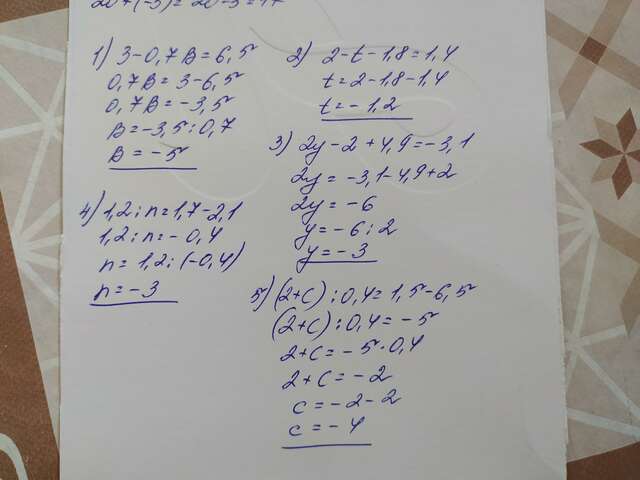 20+(-3)=20-3=17
1) 3-0,7B=6,5
0,7B=3-6,5
0,7B=-3,5
B=-3,5:0,7
B=-5
2) 2-t-1,8=1,4
t=2-1,8-1,4
t=-1,2
3) 2y-2+4,9=-3,1
2y=-3,1-4,9+2
2y=-6
y=-6:2
y=-3
4) 1,2:n=1,7-2,1
1,2:n=-0,4
n=1,2:(-0,4)
n=-3
5) (2+c):0,4=1,5-6,5
(2+c):0,4=-5
2+c=-5·0,4
2+c=-2
c=-2-2
c=-4